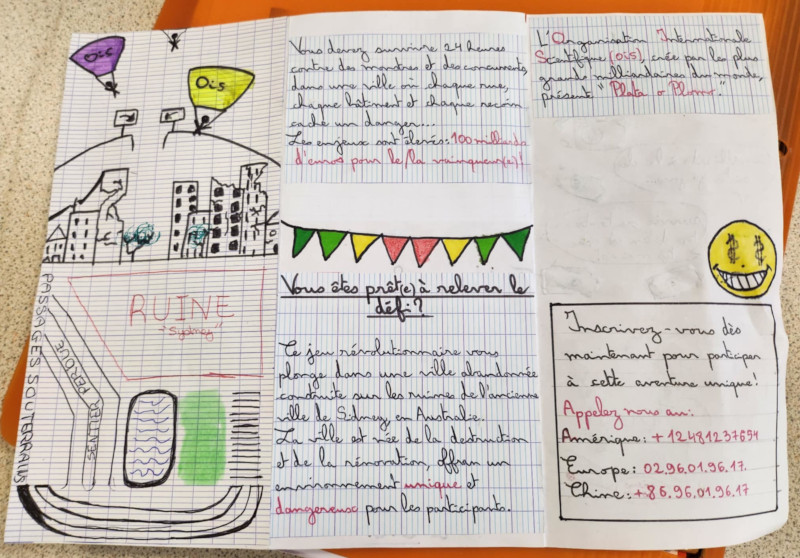 OiS
OiS
RUINE
"Sydney"
PASSAGES SOUTERRAIN
SENTIER PERDUE
RELENTE
Vous devez survivre 24 heures
contre des monstres et des concurrents,
dans une ville où chaque rue,
chaque bâtiment et chaque recoin
cache un danger...
Les enjeux sont élevés: 100 milliards
d'euros pour le/la vainqueur(e)!
Vous êtes prêt(e) à relever le
défi?
Ce jeu révolutionnaire vous
plonge dans une ville abandonnée
construite sur les ruines de l'ancienne
ville de Sidney en Australie.
La ville est née de la destruction
et de la rénovation, offran un
environnement unique et
dangereux pour les participants.
L'Organisation Internationale
Scientifique (OiS), crée par les plus
grands milliardaires du monde,
présent "Plata o Plomo."
Inscrivez-vous dès
maintenant pour participer
à cette aventure unique!
Appelez nous au:
Amérique: +12481237654
Europe: 02.96.01.96.17.
Chine: +86.96.01.96.17